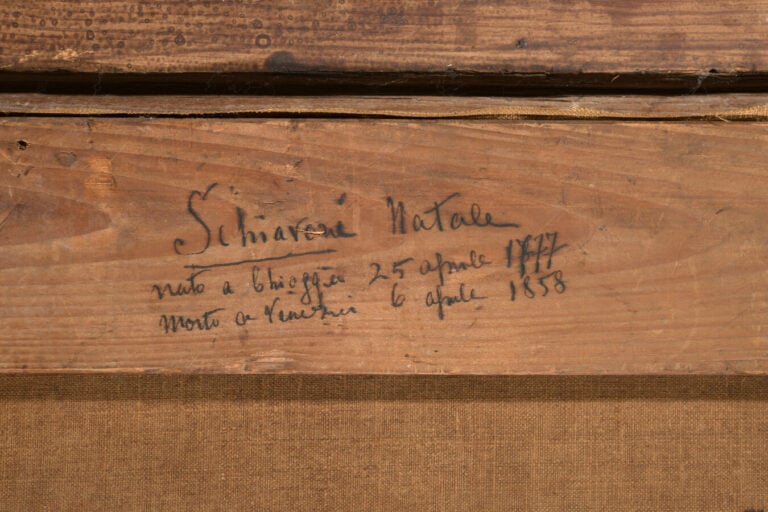 Schiavoni Natale
nato a Chioggia 25 aprile 1777
Morto a Venezia 6 aprile 1858